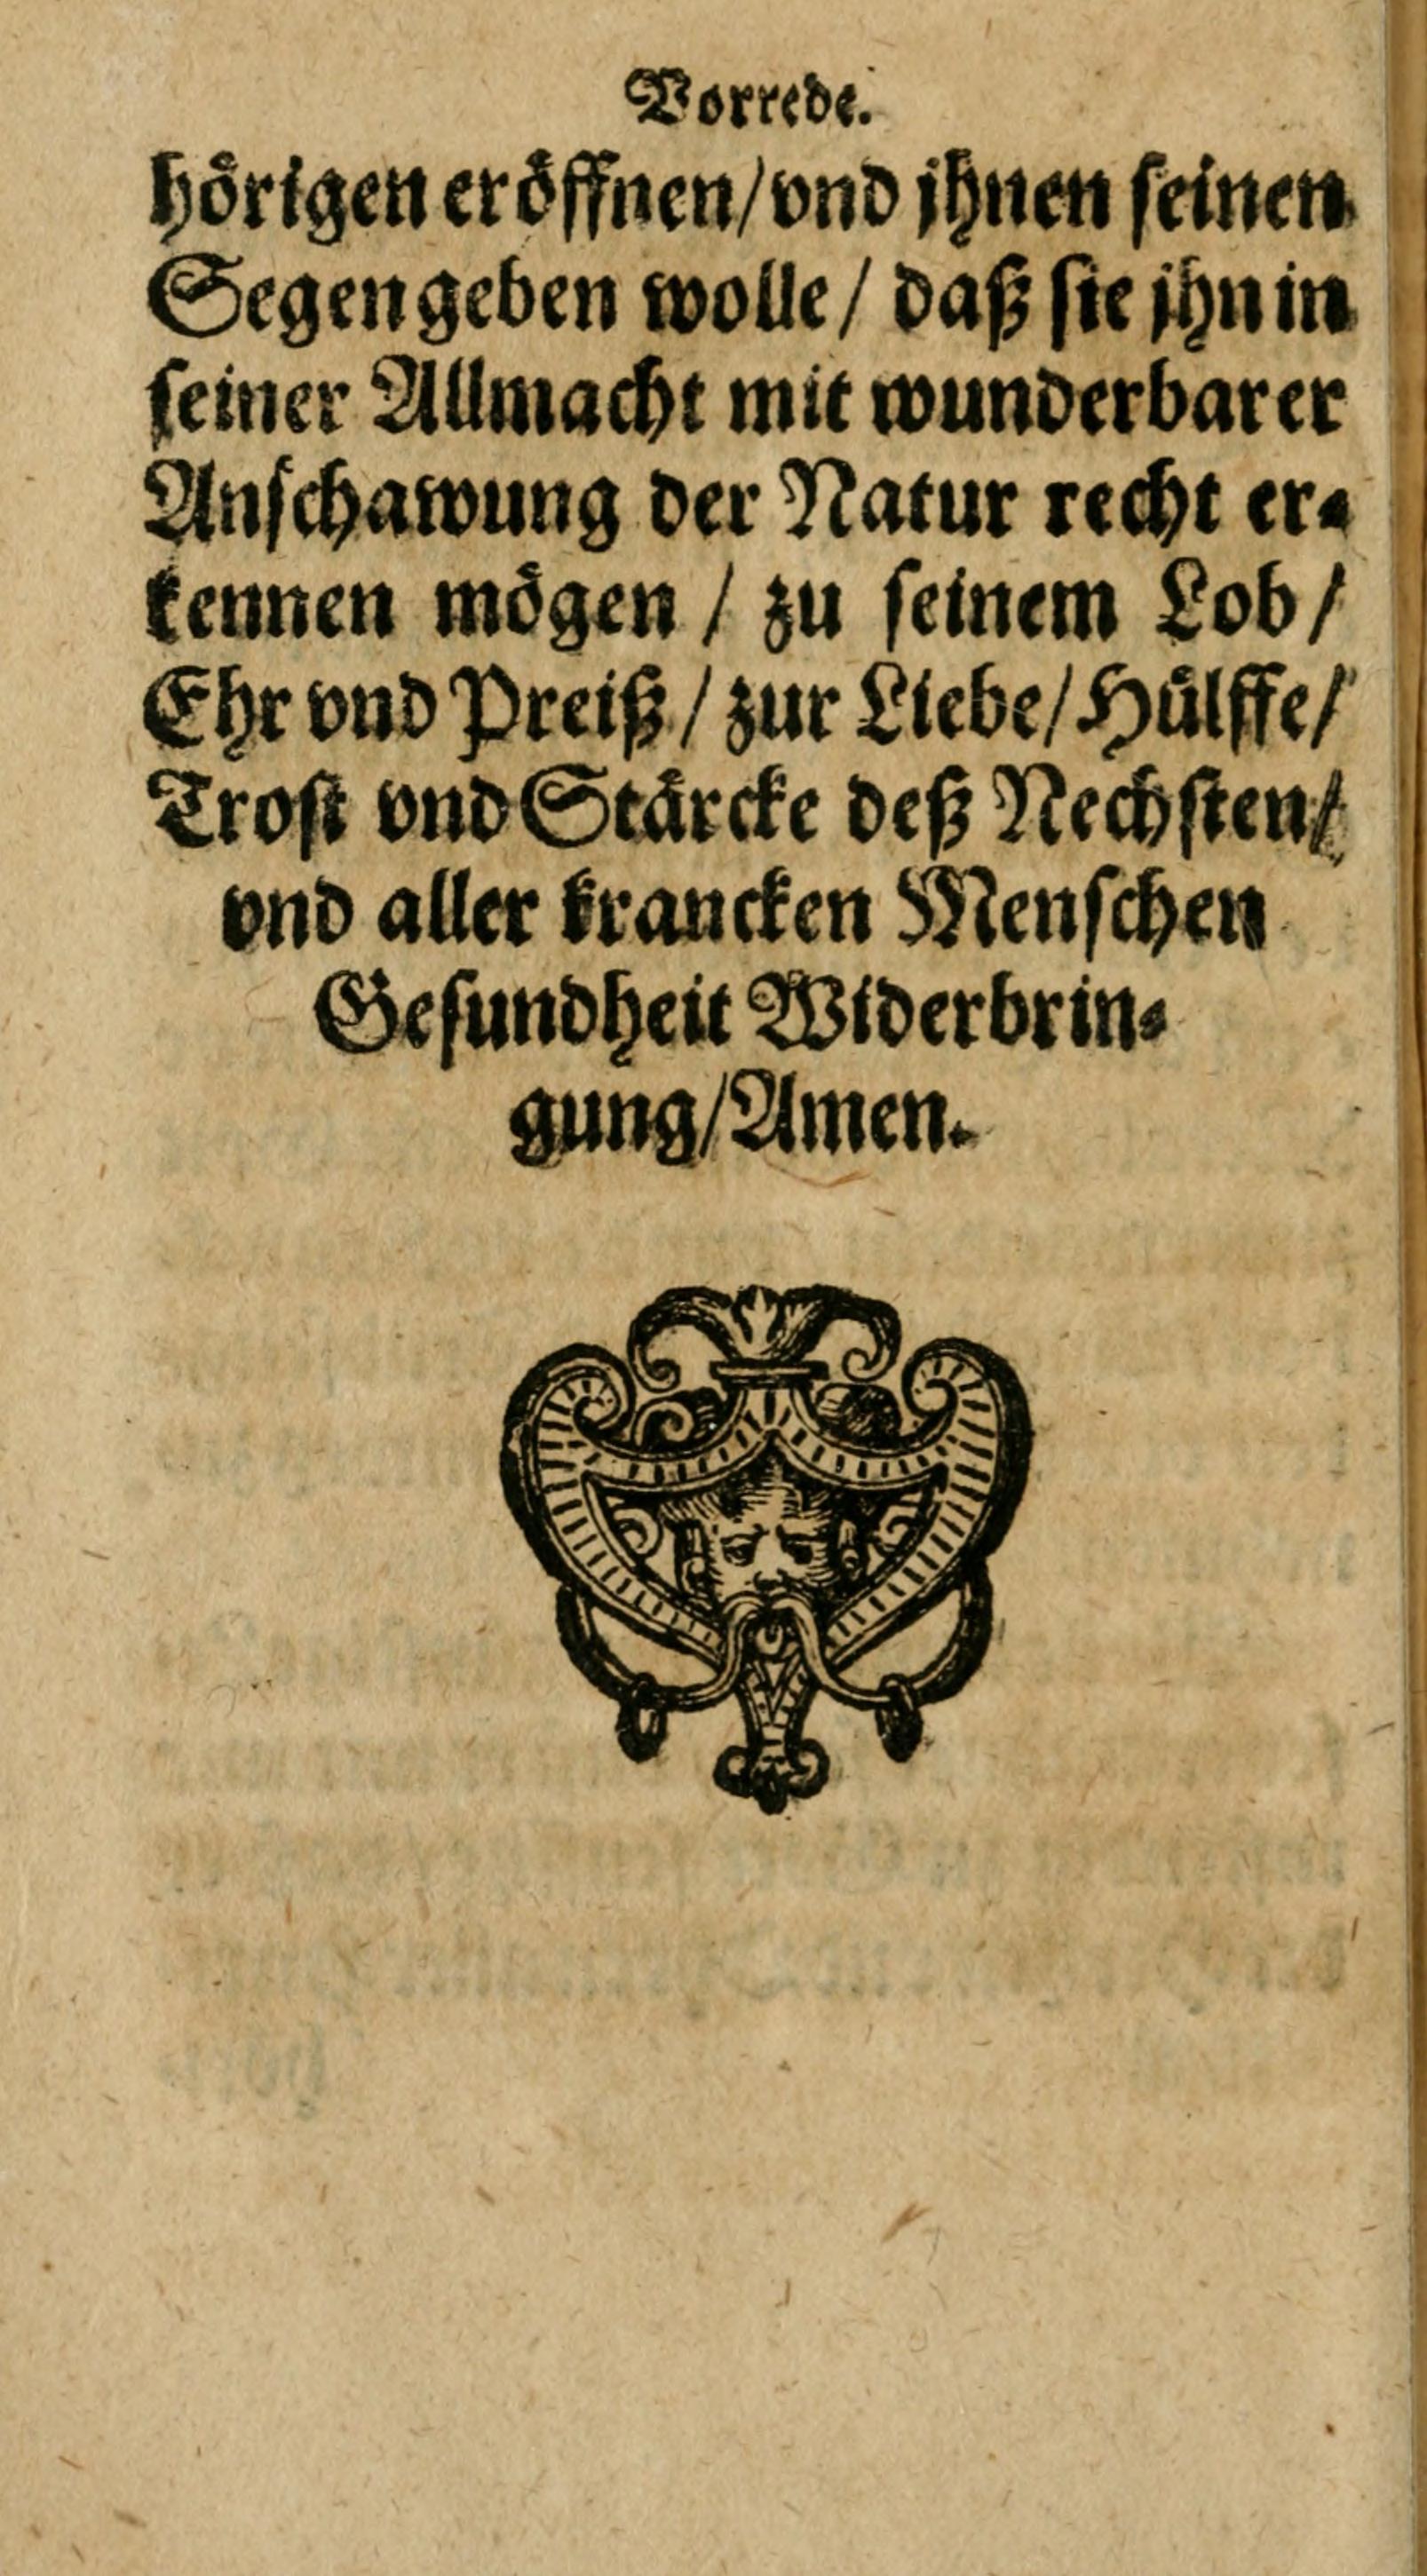 Vorrede.
hörigen eröffnen/ vnd jhnen seinen
Segen geben wolle/ daß sie jhn in
seiner Allmacht mit wunderbarer
Anschawung der Natur recht er-
kennen mögen / zu seinem Lob/
Ehr vnd Preiß / zur Liebe/ Hülffe/
Trost vnd Stärcke deß Nechsten/
vnd aller krancken Menschen
Gesundheit Widerbrin-
gung/ Amen.